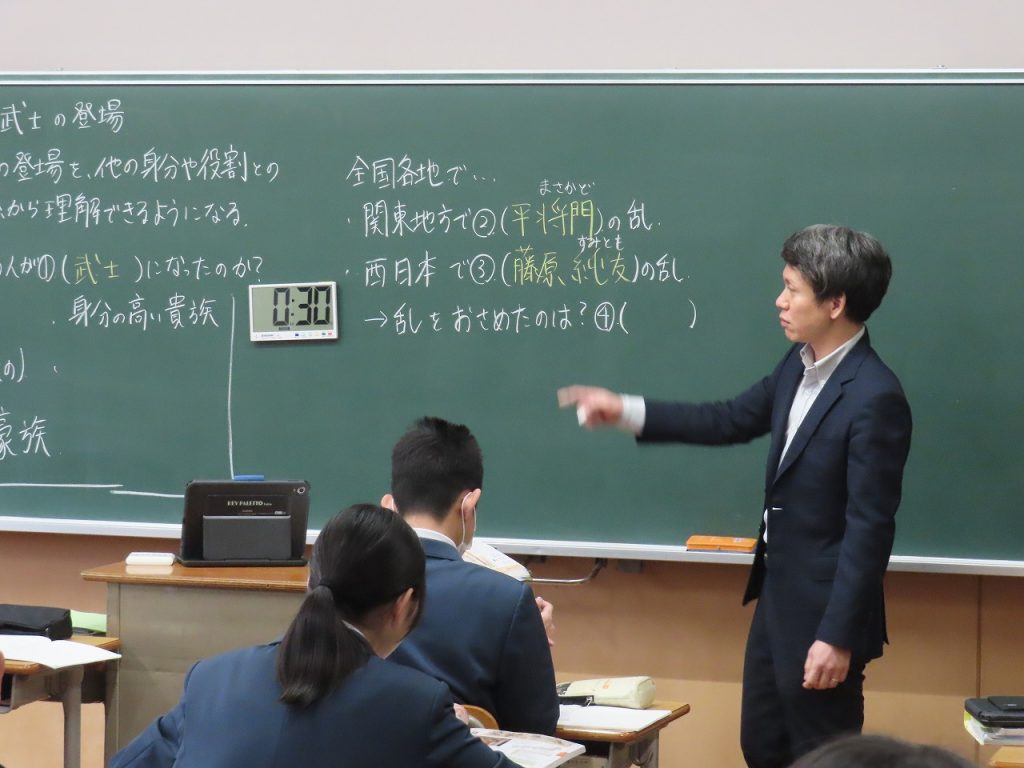 武士の登場
の登場を、他の身分や役割との
から理解できるようになる。
の人が①(武士)になったのか?
・身分の高い貴族
の)
豪族
0:30
全国各地で…
まさかど
・関東地方で②(平将門)の乱.
すみとも
・西日本で③(藤原純友)の乱
→乱をおさめたのは?④(　　)
KEY PALETTO